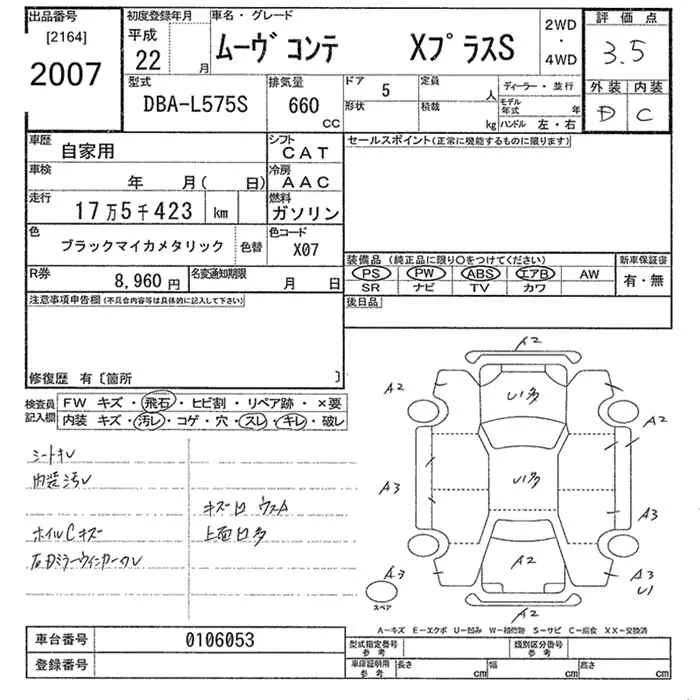 出品番号
[2164]
2007
初度登録年月
平成
22 月
車名・グレード
ムーヴコンテ XプラスS
2WD
・
4WD
評価点
3.5
外装 内装
D C
型式
DBA-L575S
排気量
660 CC
ドア 5
形状
定員 人
積載 kg
ディーラー・並行
モデル年式 年
ハンドル 左・右
車歴 自家用
シフト CAT
車検 年 月( 日)
冷房 AAC
走行 17万5千423 km
燃料 ガソリン
色 ブラックマイカメタリック 色替
色コード X07
R券 8,960 円
名変通知期限 月 日
セールスポイント(正常に機能するものに限ります)
装備品 (純正品に限り○をつけてください)
PS PW ABS エアB AW
SR ナビ TV カワ
新車保証書
有・無
後日品
注意事項申告欄(不具合内容等は具体的に記入して下さい)
修復歴 有〔箇所 〕
検査員記入欄
FW キズ・飛石・ヒビ割・リペア跡・×要
内装 キズ・汚レ・コゲ・穴・スレ・キレ・破レ
シートキレ
内装汚レ
キズ凹 ウスム
ホイルCキズ
上面凹多
右Dミラーウィンカーワレ
A2
U1多
A2
A2
U1多
A3
A3
A2
A3
A3
U1
A2
スペア
A-キズ E-エクボ U-凹み W-補修跡 S-サビ C-腐食 XX-交換済
車台番号 0106053
登録番号
型式指定番号 参考
類別区分番号 参考
車庫証明用 参考
長さ cm
幅 cm
高さ cm